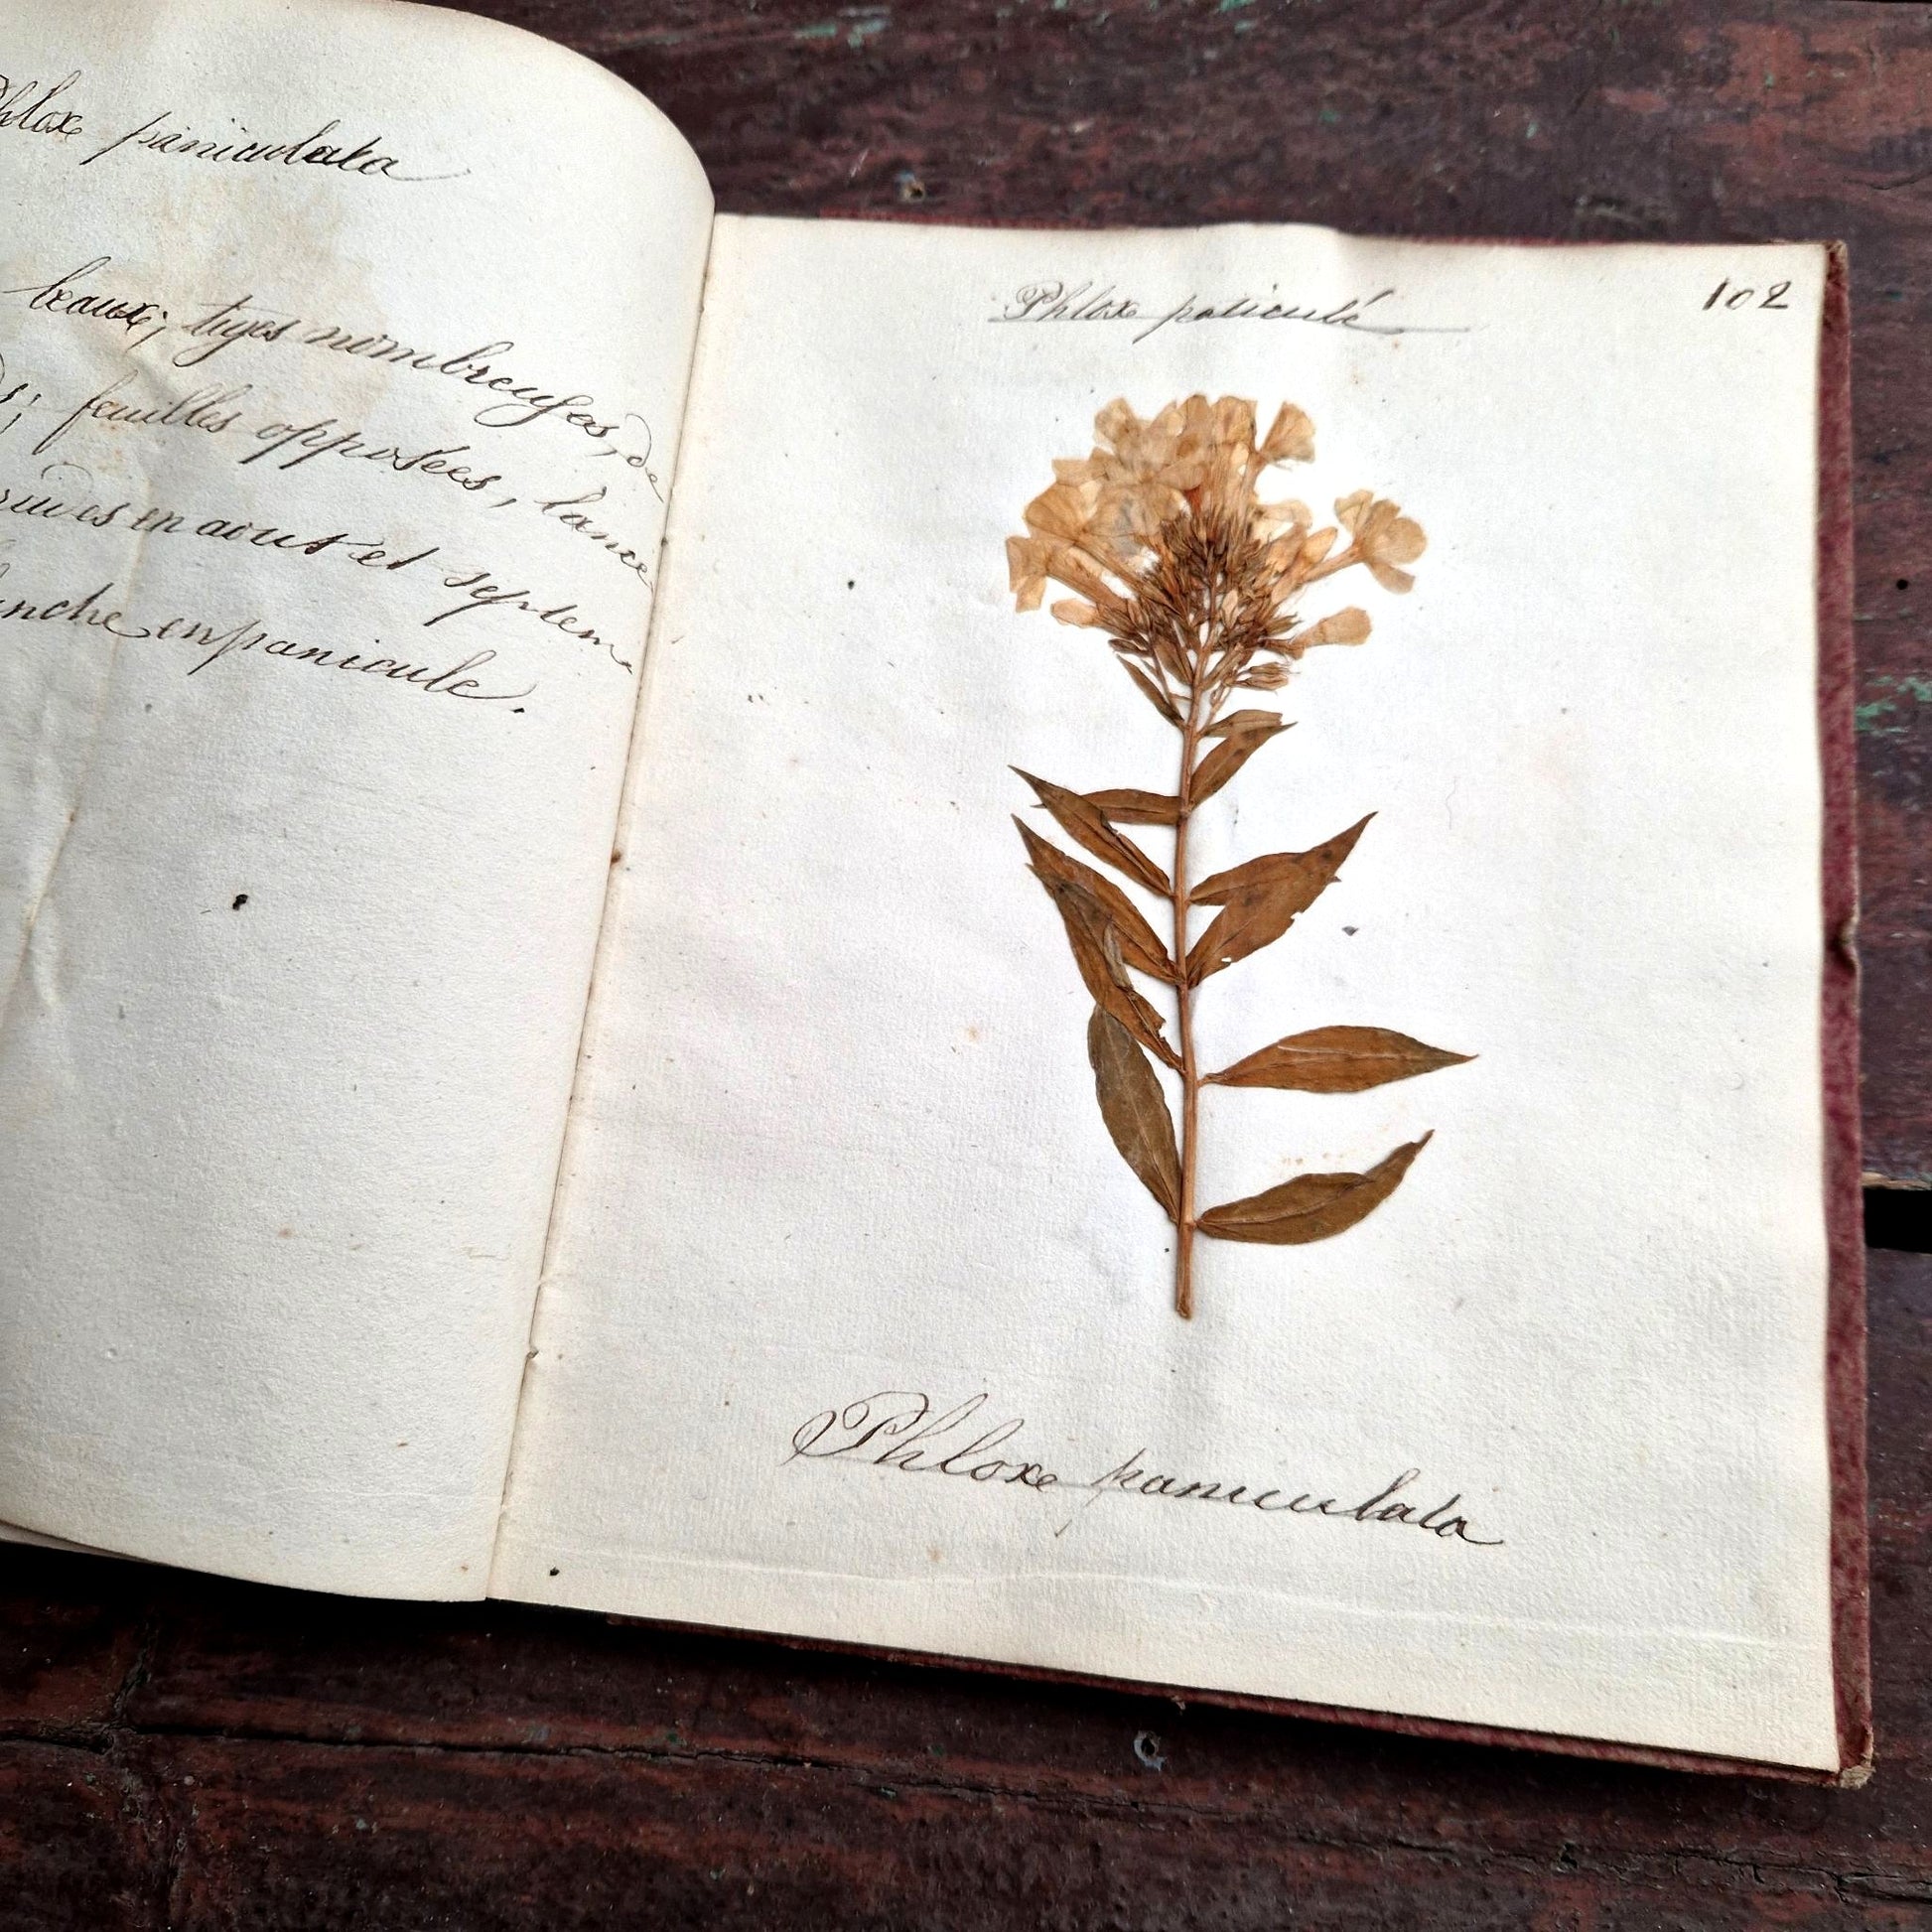 Phloxe paniculata
beaux; tiges nombreuses, de
s; feuilles opposées, lancé
en aout et septem
nche en panicule.
Phloxe paniculé
102
Phloxe paniculata